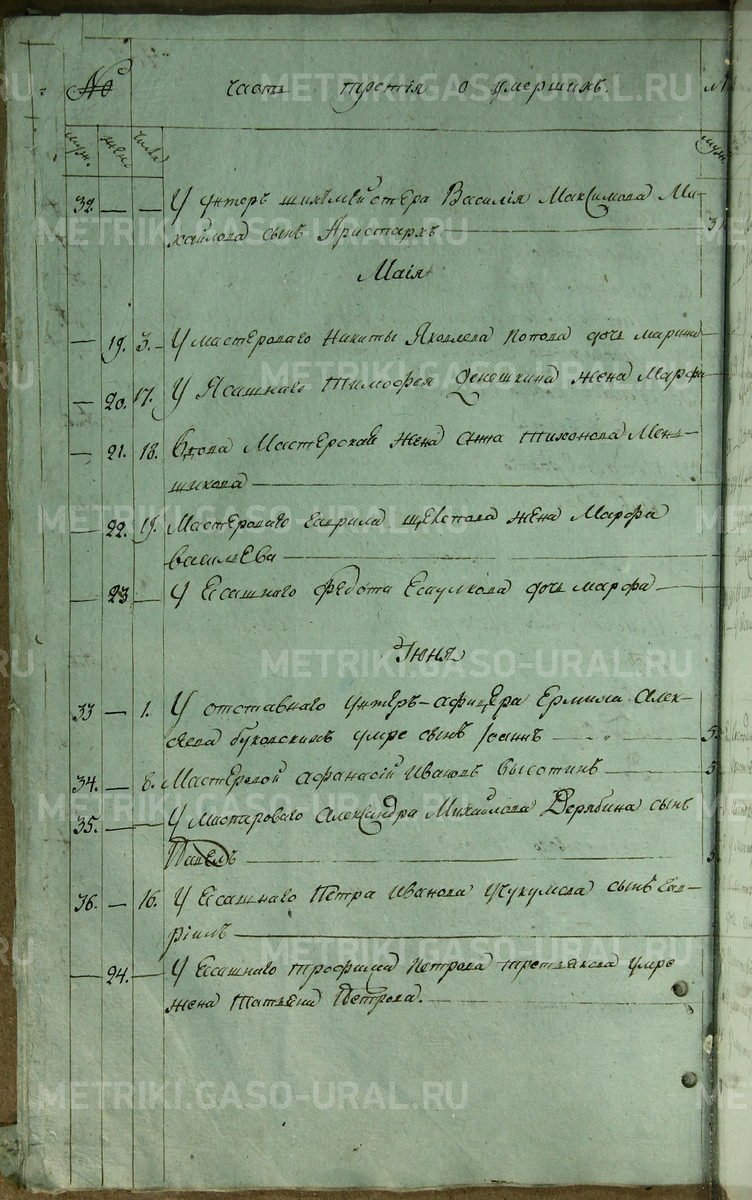 № часть третія о умершихъ.
муж. жен. числа
32. — — У унтеръ шихтмейстера Василія Максимова Ми-
хайлова сынъ Аристархъ
Маія
— 19. 3. У мастероваго Никиты Яковлева Попова дочь Марина
— 20. 17. У Ясашнаго Тимофея жена Марфа
— 21. 18. Вдова Мастерская жена Анна Тихонова Мен-
шикова
— 22. 19. Мастероваго Гаврила Щепетова жена Марфа
васильева
— 23 — У Есашнаго Федота Есаулкова дочь марфа
Іюня
33 — 1. У отставнаго унтеръ-афицера Ермила Алек-
сѣева умре сынъ Іоаннъ
34. — 8. Мастеровой афанасій Ивановъ Высотинъ
35. — — У Мастероваго Александра Михайлова Дерябина сынъ
Павелъ
36. — 16. У Есашнаго Петра Иванова Чучумова сынъ Гав-
ріилъ
— 24. — У Есашнаго трофима Петрова третьякова умре
жена Татьяна Петрова.
METRIKI.GASO-URAL.RU